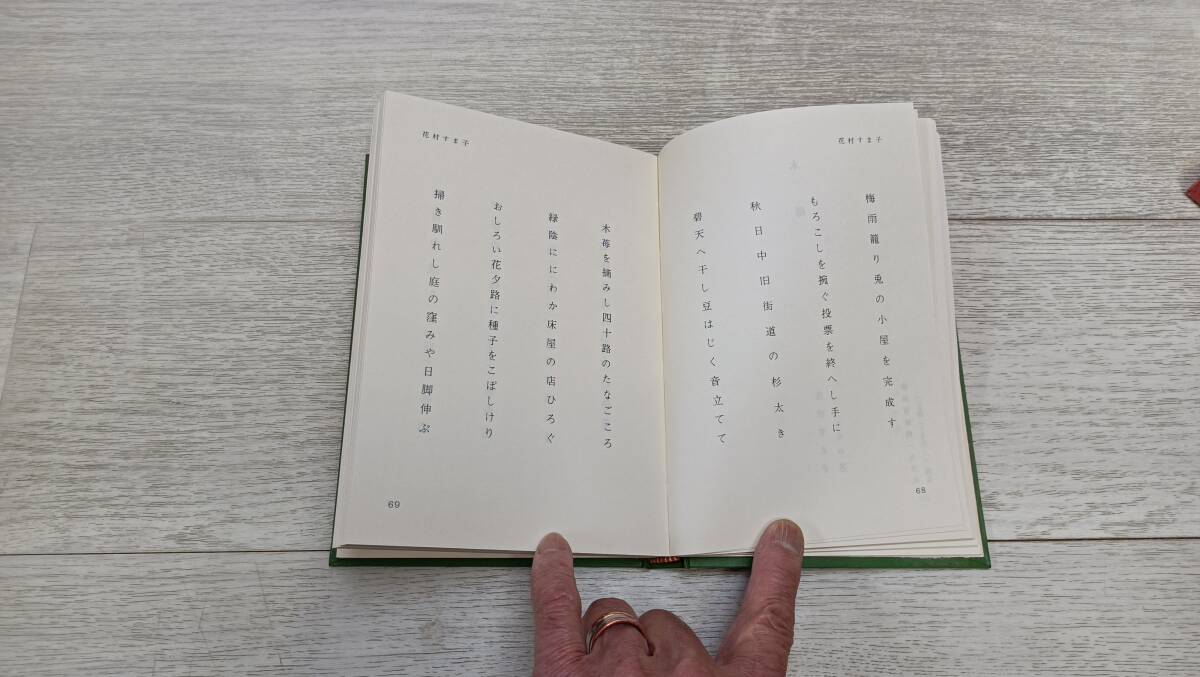 花村すま子
梅雨籠り兎の小屋を完成す
もろこしを捥ぐ投票を終へし手に
秋日中旧街道の杉太き
碧天へ干し豆はじく音立てて
68
花村すま子
木苺を摘みし四十路のたなごころ
緑陰ににわか床屋の店ひろぐ
おしろい花夕路に種子をこぼしけり
掃き馴れし庭の窪みや日脚伸ぶ
69